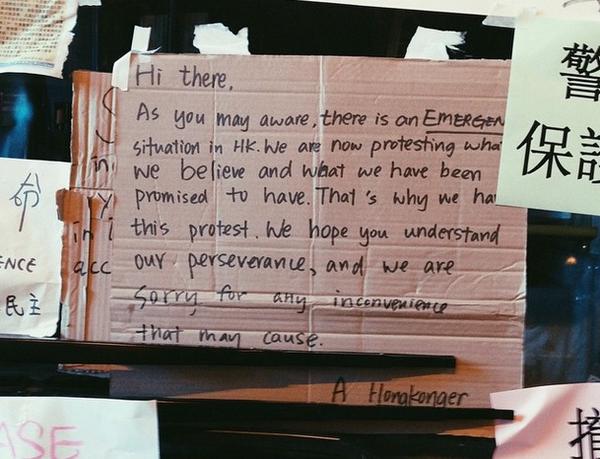 Hi there,
As you may aware, there is an EMERGEN
situation in HK. We are now protesting what
we believe and what we have been
promised to have. That's why we ha
this protest. We hope you understand
our perseverance, and we are
sorry for any inconvenience
that may cause.
A Hongkonger
警
保
命
ENCE
民主
in
y
in i
acc
ASE